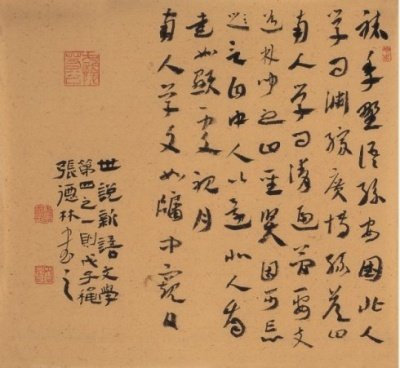 褚季野語孫安國北人
学问渊综廣博孫答曰
南人学问清通簡要支
道林聞之曰聖賢固所忘
言自中人以還北人看
書如顯處視月
南人学文如牖中窺日
世說新語文學
第四之一則戊子穐
張林書之